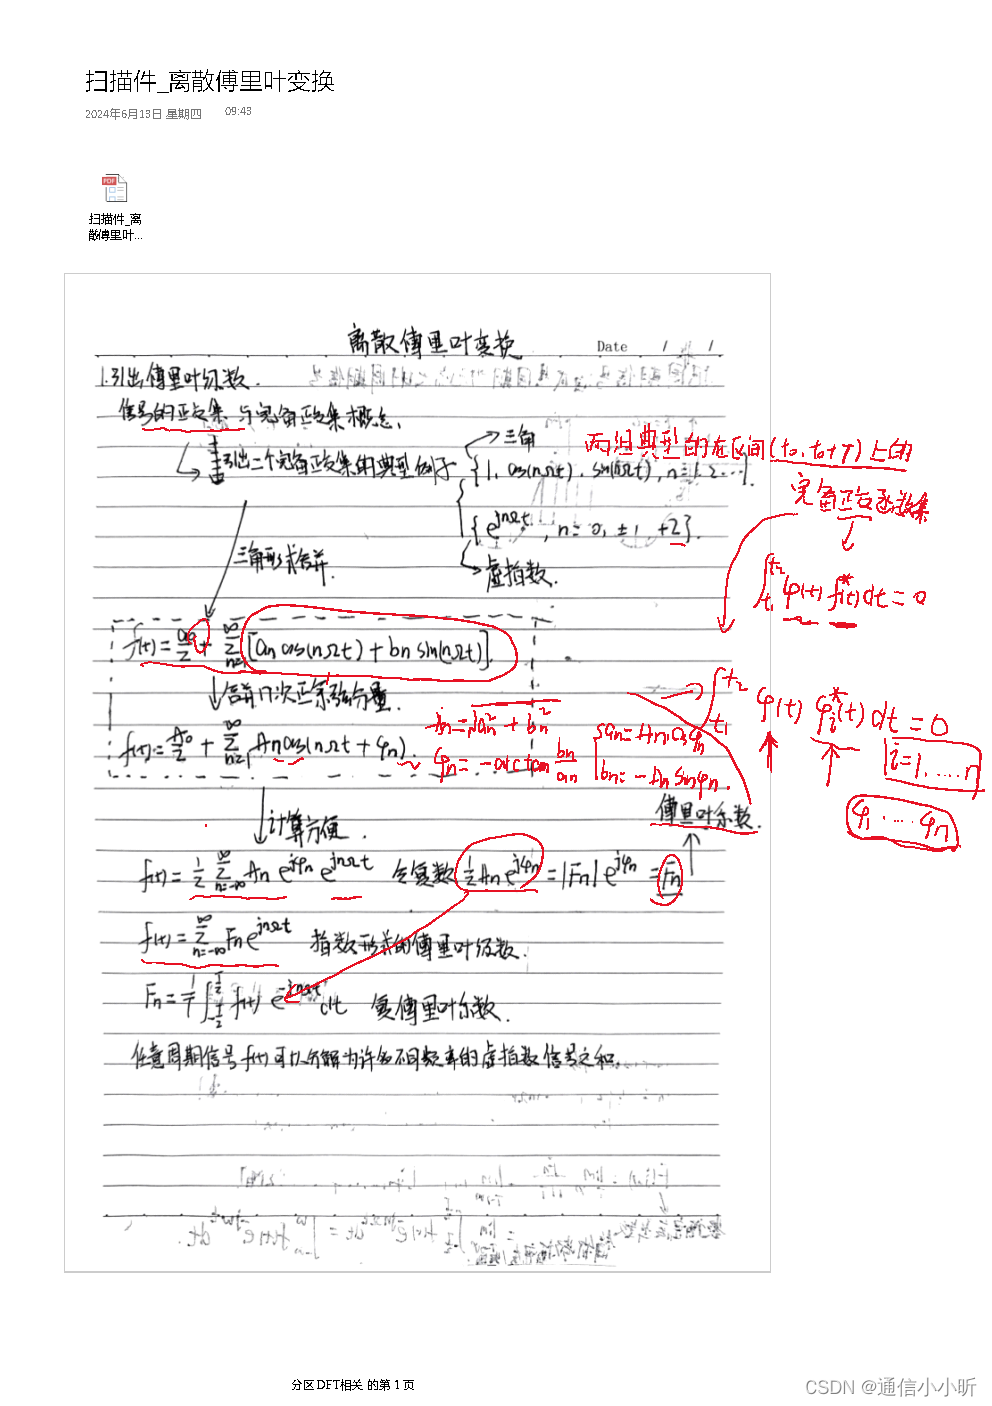 扫描件_离散傅里叶变换
2024年6月13日 星期四 09:43
PDF
扫描件_离
散傅里叶...
离散傅里叶变换 Date / /
1.引出傅里叶级数.
信号的正交集 与完备正交集概念.
引出二个完备正交集的典型例子
三角
{1, cos(nΩt), sin(nΩt), n=1.2...}.
{e^{jnΩt}, n=0, ±1, ±2}.
虚指数.
两组典型的在区间(t₀, t₀+T)上的
完备正交函数集
∫_{t₁}^{t₂} φ(t) f*(t) dt = 0
三角形式合并.
f(t)= a₀/2 + ∑_{n=1}^{∞} [an cos(nΩt) + bn sin(nΩt)].
合并几次正余弦分量.
∫_{t₁}^{t₂} φ(t) φᵢ*(t) dt = 0
i=1,....n
φ₁ .... φn
f(t)= A₀/2 + ∑_{n=1}^{∞} An cos(nΩt + φn).
An = √(an² + bn²)
φn = -arctan bn/an
{an = An cosφn
bn = -An sinφn.
傅里叶系数.
计算方便.
f(t) = 1/2 ∑_{n=-∞}^{∞} An e^{jφn} e^{jnΩt} 令复数 1/2 An e^{jφn} = |Fn| e^{jφn} = Fn
f(t) = ∑_{n=-∞}^{∞} Fn e^{jnΩt} 指数形式的傅里叶级数.
Fn = 1/T ∫_{-T/2}^{T/2} f(t) e^{-jnΩt} dt 复傅里叶系数.
任意周期信号f(t)可以分解为许多不同频率的虚指数信号之和.
分区 DFT相关 的第 1 页
CSDN @通信小小昕